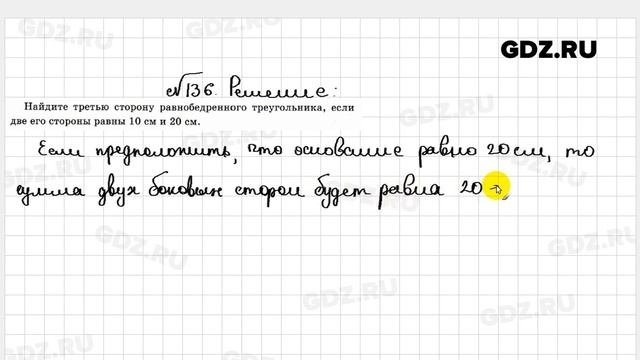 GDZ.RU
№136. Решение:
Найдите третью сторону равнобедренного треугольника, если
две его стороны равны 10 см и 20 см.
Если предположить, что основание равно 20 см, то
сумма двух боковых сторон будет равна 20